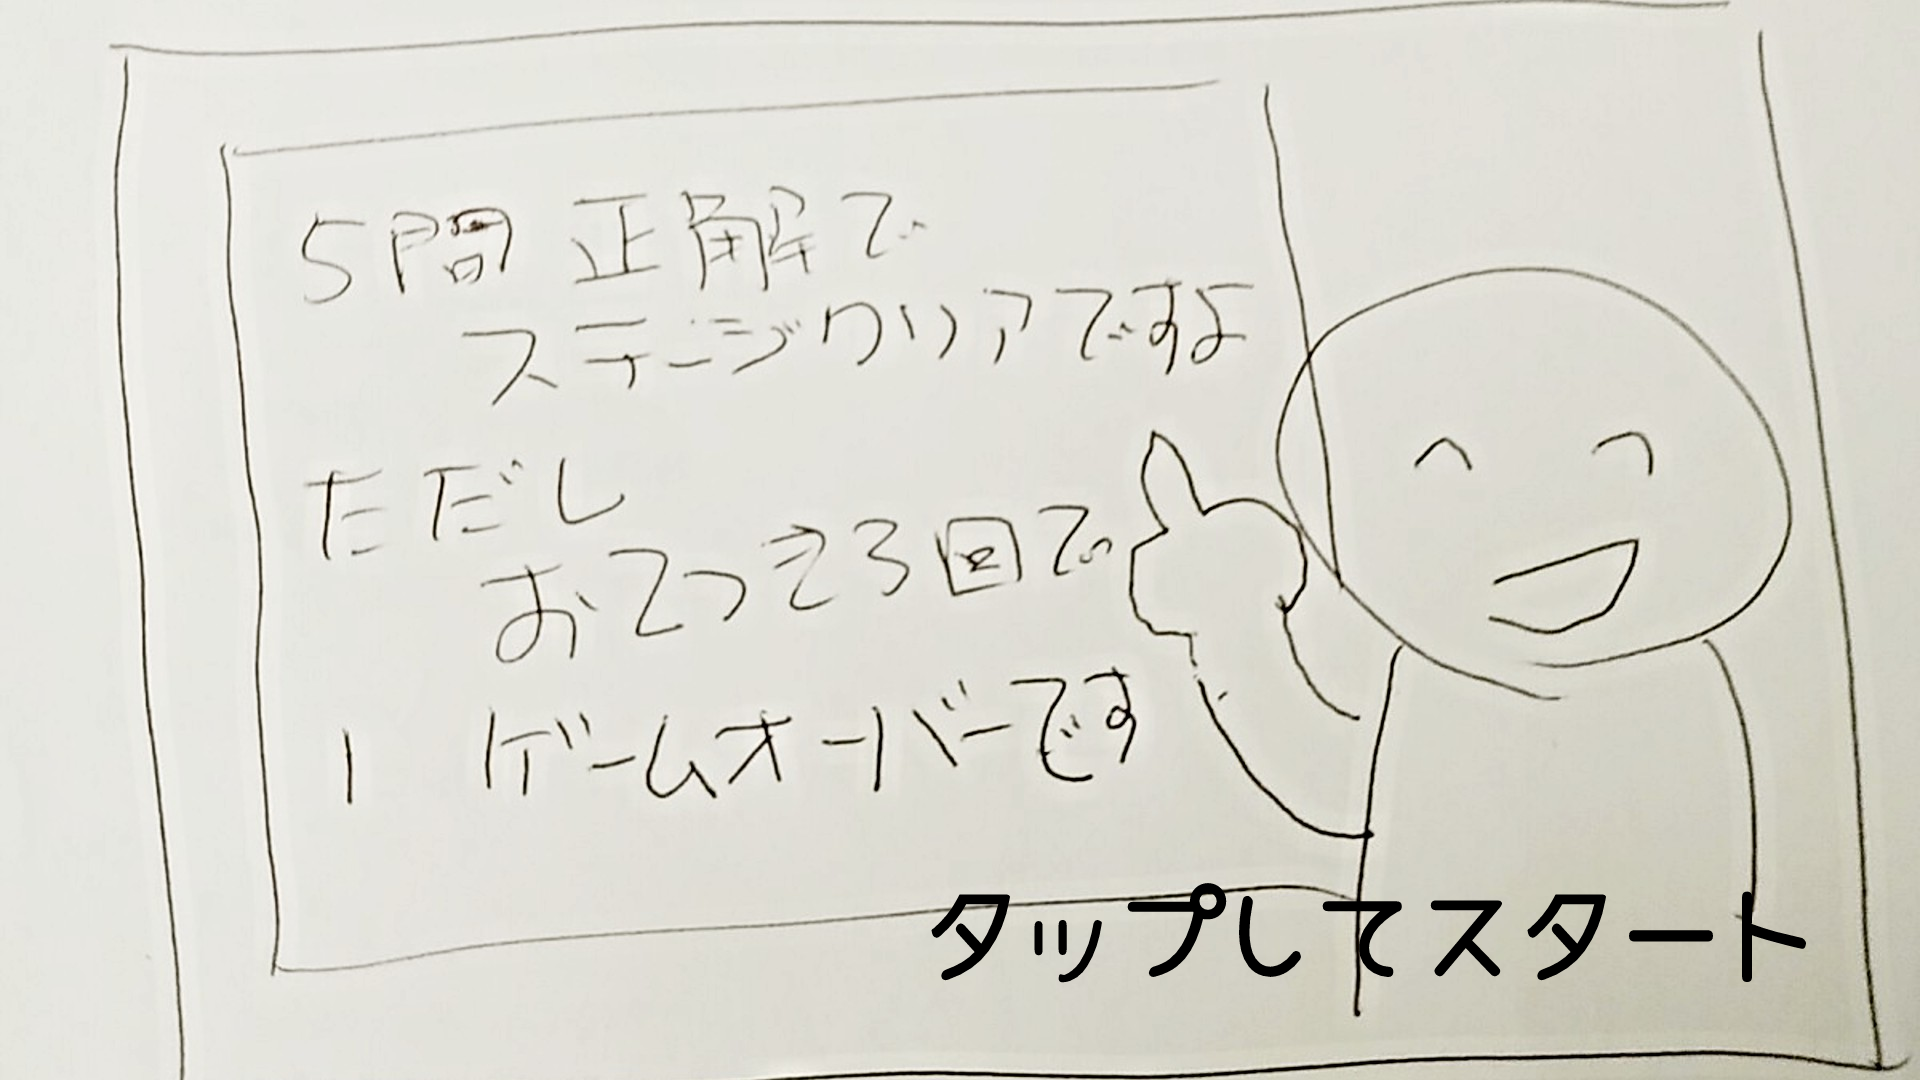 5問 正解で
ステージクリアですよ
ただし
おてつき3回で
ゲームオーバーです
タップしてスタート